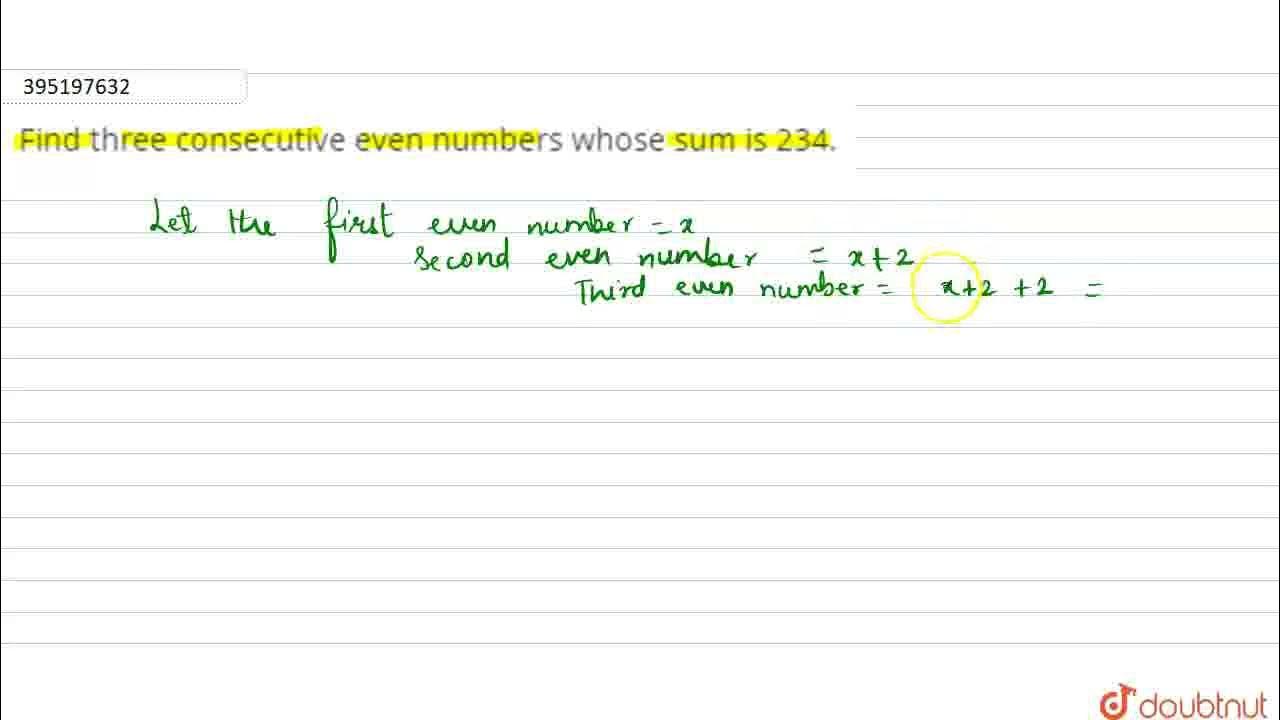 395197632
Find three consecutive even numbers whose sum is 234.
Let the first even number = x
Second even number = x+2
Third even number = x+2 +2 =
doubtnut